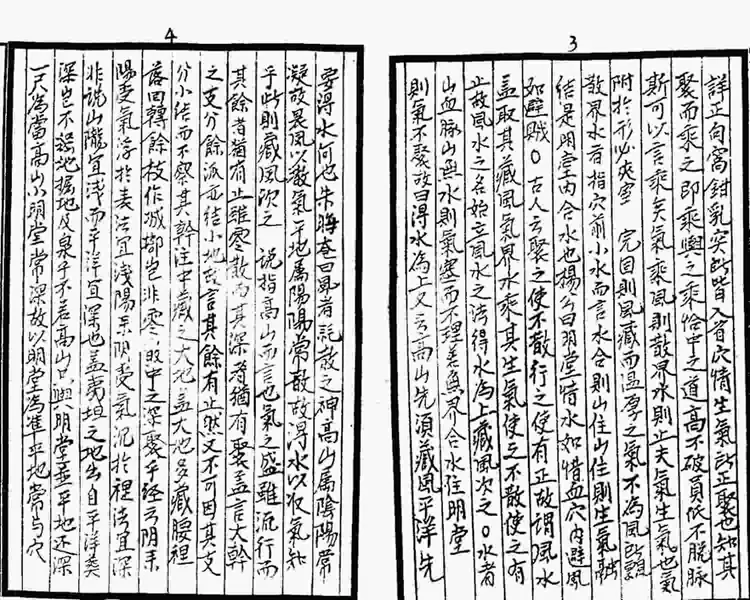 3
詳正向窩鉗乳突所皆入首穴情生氣所正聚也知其
聚而乘之即乘輿之乘恰中之道高不破員低不脫脉
斯可以言乘矣氣乘風則散界水則止夫氣生氣也氣
附於形必夾室 完固則風藏而溫厚之氣不為風所飄
散界水者指穴前小水而言水合則山住山住則生氣融
結是明堂內合水也揚公曰明堂惜水如惜血穴內避風
如避賊○古人云聚之使不散行之使有止故謂風水
蓋取其藏風氣界水乘其生氣使之不散使之有
止故風水之名始立風水之法得水為上藏風次之○水者
山血脉山無水則氣塞而不理差魚界合水住明堂
則氣不聚故曰得水為上又云高山先須藏風平洋先
4
要得水何也朱晦庵曰風者耗散之神高山属陰陽常
凝故畏風以散氣平地属陽陽常散故得水以收氣知
乎此則藏風次之 說指高山而言也氣之盛雖流行而
其餘者猶有止雖零散而其深者猶有聚蓋言大幹
之支分餘派並結小地故言其餘有止然又不可因其支
分小結而不察其幹注中藏之大地蓋大地多藏腰裡
落回轉餘枝作城郭豈非零散中之深聚乎經云陰來
陽受氣浮於表法宜淺陽來陰受氣沉於裡法宜深
非說山隴宜淺而平洋宜深也蓋夷坦之地出自平洋葬
深豈不強地掘地及泉乎不若高山只與明堂並平地还深
一尺為當高山小明堂常深故以明堂為准平地常与穴